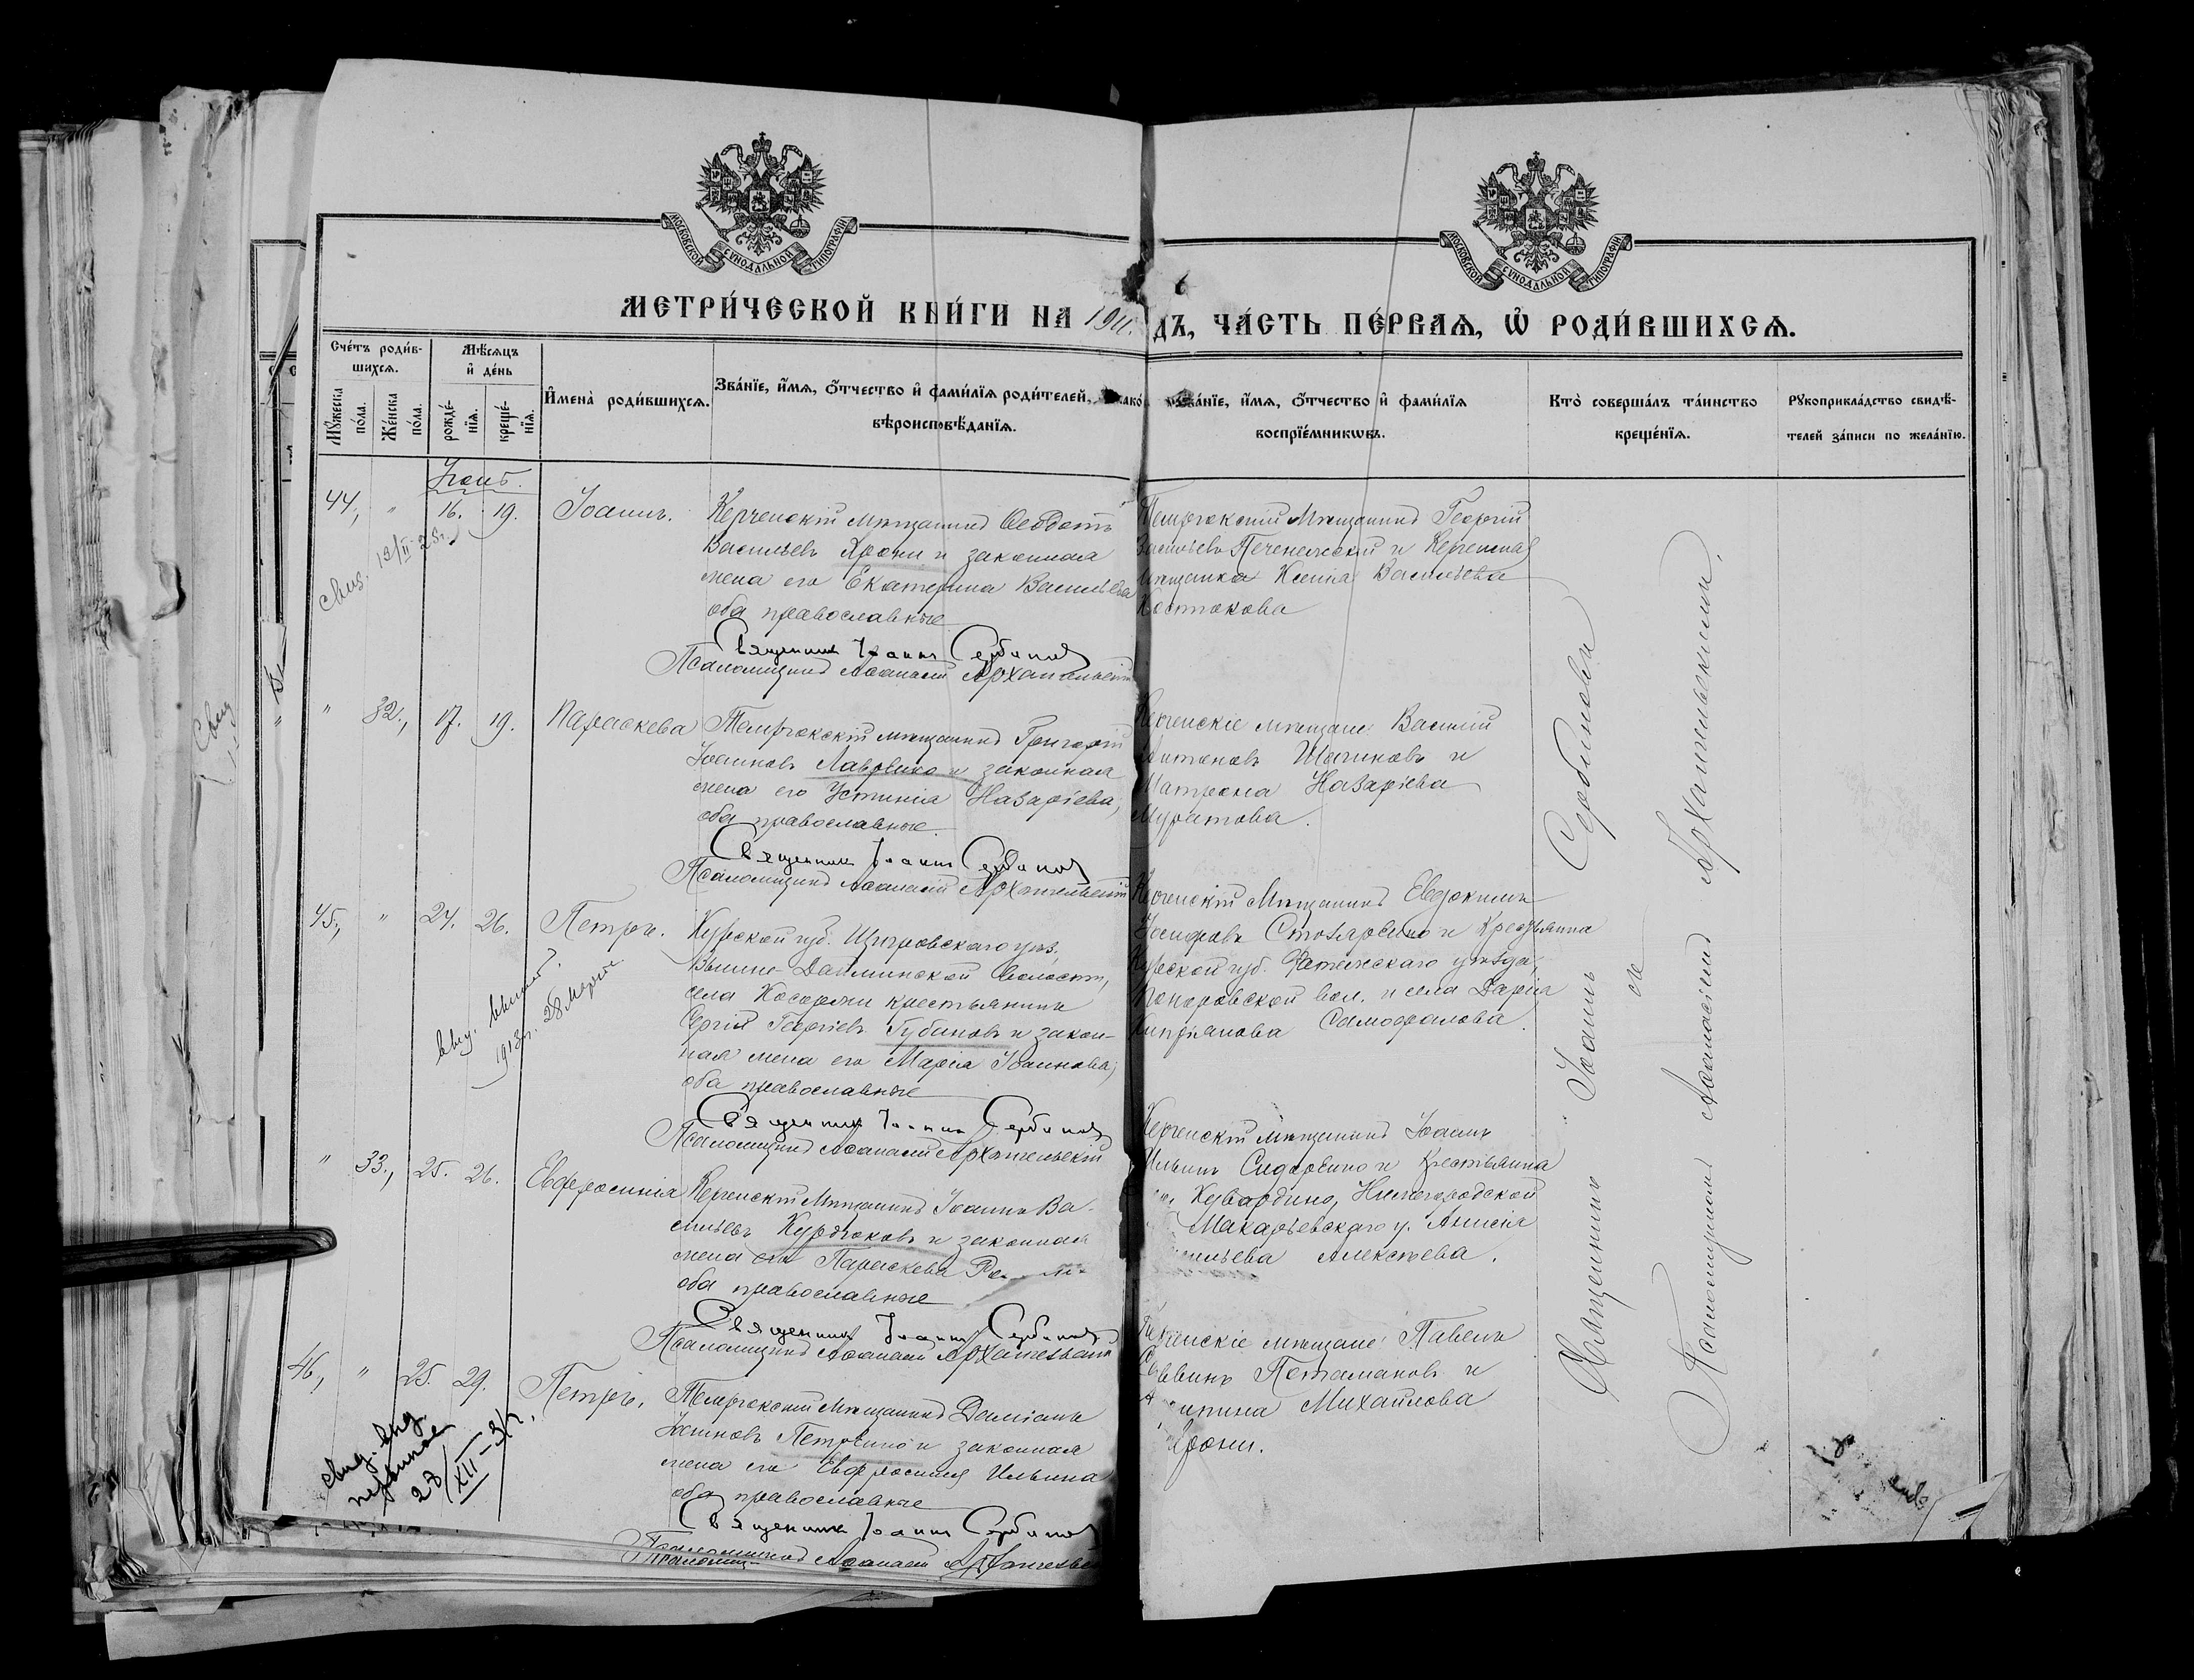 МОСКОВСКОЙ СѴНОДАЛЬНОЙ ТИПОГРАФІИ
МОСКОВСКОЙ СѴНОДАЛЬНОЙ ТИПОГРАФІИ
МЕТРИ́ЧЕСКОЙ КНИ́ГИ НА 1911.
ДЪ, ЧА́СТЬ ПЕ́РВАѦ, Ѡ҆ РОДИ́ВШИХСѦ.
Сче́тъ роди́в-
шихсѧ.
Мѣ́сѧцъ
и҆ де́нь
Мꙋ́жеска по́ла.
Же́нска по́ла.
рожде́-
нїѧ.
креще́-
нїѧ.
И҆мена̀ роди́вшихсѧ.
Зва́нїе, и҆́мѧ, ѻ҆́тчество и҆ фами́лїѧ роди́телей,
вѣроисповѣ́данїѧ.
Зва́нїе, и҆́мѧ, ѻ҆́тчество и҆ фами́лїѧ
воспрїе́мникѡвъ.
Кто̀ соверша́лъ та́инство
креще́нїѧ.
Рꙋкоприкла́дство свидѣ́-
телей за́писи по жела́нїю.
44, " 16. 19. Іоаннъ.
Керченскій мѣщанинъ Ѳеодотъ
Васильевъ Ярони и законная
жена его Екатерина Васильева
оба православные
Священникъ Іоаннъ Сербиновъ
Псаломщикъ Аѳанасій Архангельскій
Темрюкскій мѣщанинъ Георгій
Васильевъ и Керченская
мѣщанка Ксенія Васильева
Костюкова
" 32., 17. 19. Параскева
Темрюкскій мѣщанинъ Григорій
Іоанновъ Лавренко и законная
жена его Устинія Назаріева,
оба православные.
Священникъ Іоаннъ Сербиновъ
Псаломщикъ Аѳанасій Архангельскій
Керченскіе мѣщане: Василій
Антоновъ и
Матрона Назаріева
Муратова.
45, " 24. 26. Петръ.
1913 г. 28 Марта
Курской губ. Щигровскаго уѣз.
Волости,
села Косоржи крестьянинъ
Сергій Георгіевъ Губановъ и закон-
ная жена его Марія Іоаннова,
оба православные
Священникъ Іоаннъ Сербиновъ
Псаломщикъ Аѳанасій Архангельскій
Керченскій мѣщанинъ Евдокимъ
Іосифовъ Столяренко и Крестьянка
Курской губ. Фатежскаго уѣзда,
вол. и села Дарія
Кипріанова Самофалова.
" 33., 25. 26. Евфросинія
Керченскій мѣщанинъ Іоаннъ Ва-
сильевъ Курдюковъ и законная
жена его Параскева
оба православные
Священникъ Іоаннъ Сербиновъ
Псаломщикъ Аѳанасій Архангельскій
Керченскій мѣщанинъ Іоаннъ
Ильинъ Сидоренко и Крестьянка
Нижегородской
Макарьевскаго у. Анисія
Алексѣева.
46, " 25. 29. Петръ.
28/XII-31 г.
Темрюкскій мѣщанинъ Даміанъ
Іоанновъ Петренко и законная
жена его Евфросинія Ильина
оба православные
Священникъ Іоаннъ Сербиновъ
Псаломщикъ Аѳанасій Архангельскій
Керченскіе мѣщане: Павелъ
Саввинъ и
Михайлова
Ярони.
Священникъ Іоаннъ Сербиновъ
съ
Псаломщикомъ Аѳанасіемъ Архангельскимъ.